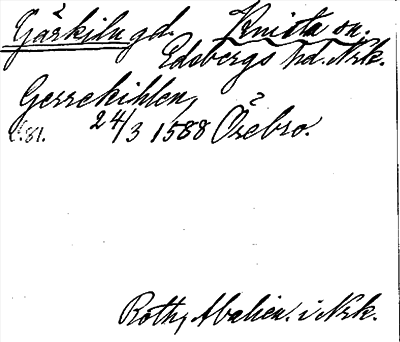 Gärkiln gd. Knista sn.
Edsbergs hd. Nrk.
Gerrekihlen
24/3 1588 Örebro.
Roth, i Nrk.